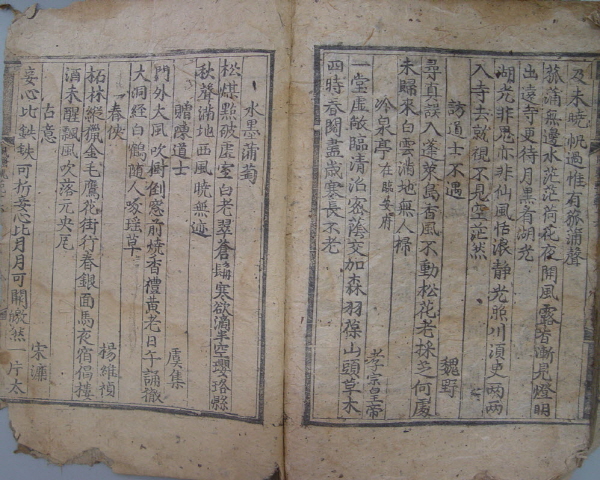 及未曉帆過惟有菰蒲聲
菰蒲無邊水茫茫荷花夜開風露香漸見燈明
出遠寺更待月黑看湖光
湖光非鬼亦非仙風恬浪靜光照川須臾兩兩
入寺去就視不見空茫然
訪道士不遇 魏野
尋真誤入蓬萊島香風不動松花老採芝何處
未歸來白雲滿地無人掃
冷泉亭 在臨安府 孝宗皇帝
一堂虛敞臨清沼密蔭交加森羽葆山頭草木
四時春閱盡歲寒長不老
水墨蒲萄
松煤點破虛室白老翠蒼髥寒欲滴半空瓔珞縣
秋聲滿地西風曉無迹
贈陳道士 虞集
門外大風吹樹倒窓前燒香禮黃老日午誦徹
大洞經白鶴隨人啄瑤草
春俠 楊維楨
柘林縱獵金毛鷹花街行春銀面馬夜宿倡樓
酒未醒飄風吹落元央瓦
古意 宋濂
妾心比鐵鐵可折妾心比月月可闕皦然一片太